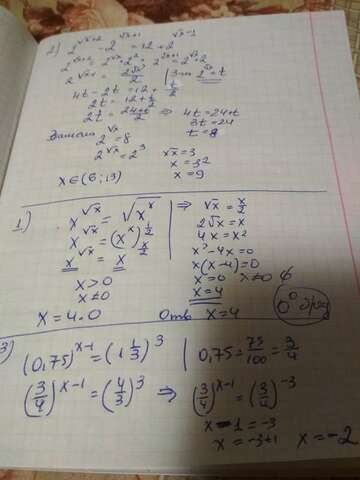 2) 2^(√x+2) - 2^(√x+1) = 12 + 2^(√x-1)
2^(√x+2) = 2^√x · 2² 2^(√x+1) = 2^√x · 2
2^(√x-1) = 2^√x/2 2^√x = t
4t - 2t = 12 + t/2
2t = 12 + t/2
2t = (24+t)/2 ⇒ 4t = 24+t
3t = 24
t = 8
2^√x = 8
2^√x = 2³ √x = 3
x = 3²
x = 9
x ∈ (6; 13)
1)
x^√x = √(x^x) ⇒ √x = x/2
x^√x = (x^x)^(1/2) 2√x = x
x^√x = x^(x/2) 4x = x²
x² - 4x = 0
x > 0 x(x-4) = 0
x ≠ 0 x = 0 x ≠ 0
x = 4
x = 4.0 Отв x = 4
0⁰
3)
(0,75)^(x-1) = (1 1/3)³ 0,75 = 75/100 = 3/4
(3/4)^(x-1) = (4/3)³ ⇒ (3/4)^(x-1) = (3/4)^(-3)
x - 1 = -3
x = -3+1 x = -2